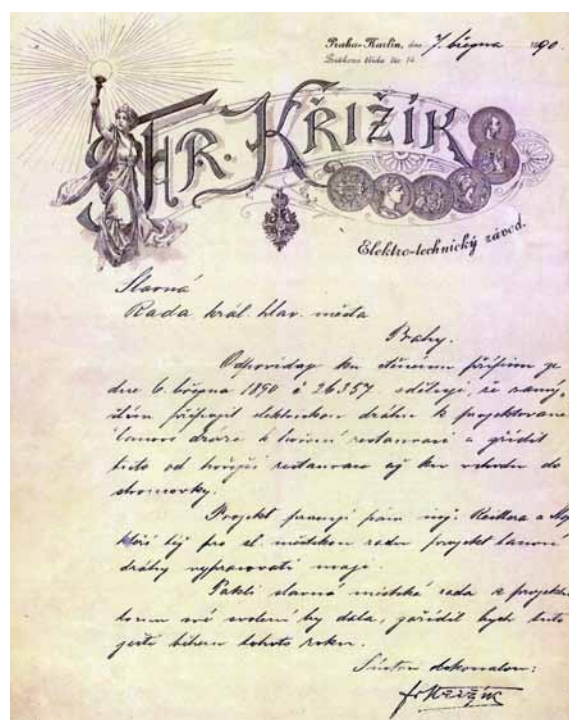 Praha-Karlín, dne 7. března 1890
FR. KŘIŽÍK
Elektro-technický závod.
Slavná
Rada král. hlav. města
Prahy.
Odpovídaje ku ctěnému přípisu ze
dne 6. března 1890 č 26357 sděluji, že
připojit elektrickou dráhu k projektované
lanové dráze k restauraci a zřídit
tuto od hořejší restaurace až ku vchodu do
stromovky.
Projekt pracují páni inž. Reitler a
kteří též pro sl. městskou radu projekt lanové
dráhy vypracovati mají.
Pakli slavná městská rada k
tomu své svolení by dala, zařídil bych tuto
ještě během tohoto roku.
S úctou dokonalou:
Fr Křižík